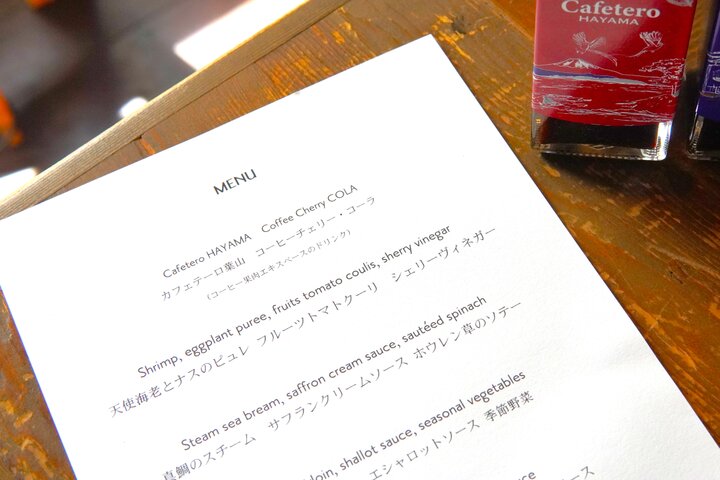 Cafetero
HAYAMA
MENU
Cafetero HAYAMA Coffee Cherry COLA
カフェテーロ葉山 コーヒーチェリー・コーラ
(コーヒー果肉エキスベースのドリンク)
Shrimp, eggplant puree, fruits tomato coulis, sherry vinegar
天使海老とナスのピュレ フルーツトマトクーリ シェリーヴィネガー
Steam sea bream, saffron cream sauce, sautéed spinach
真鯛のスチーム サフランクリームソース ホウレン草のソテー
shallot sauce, seasonal vegetables
エシャロットソース 季節野菜